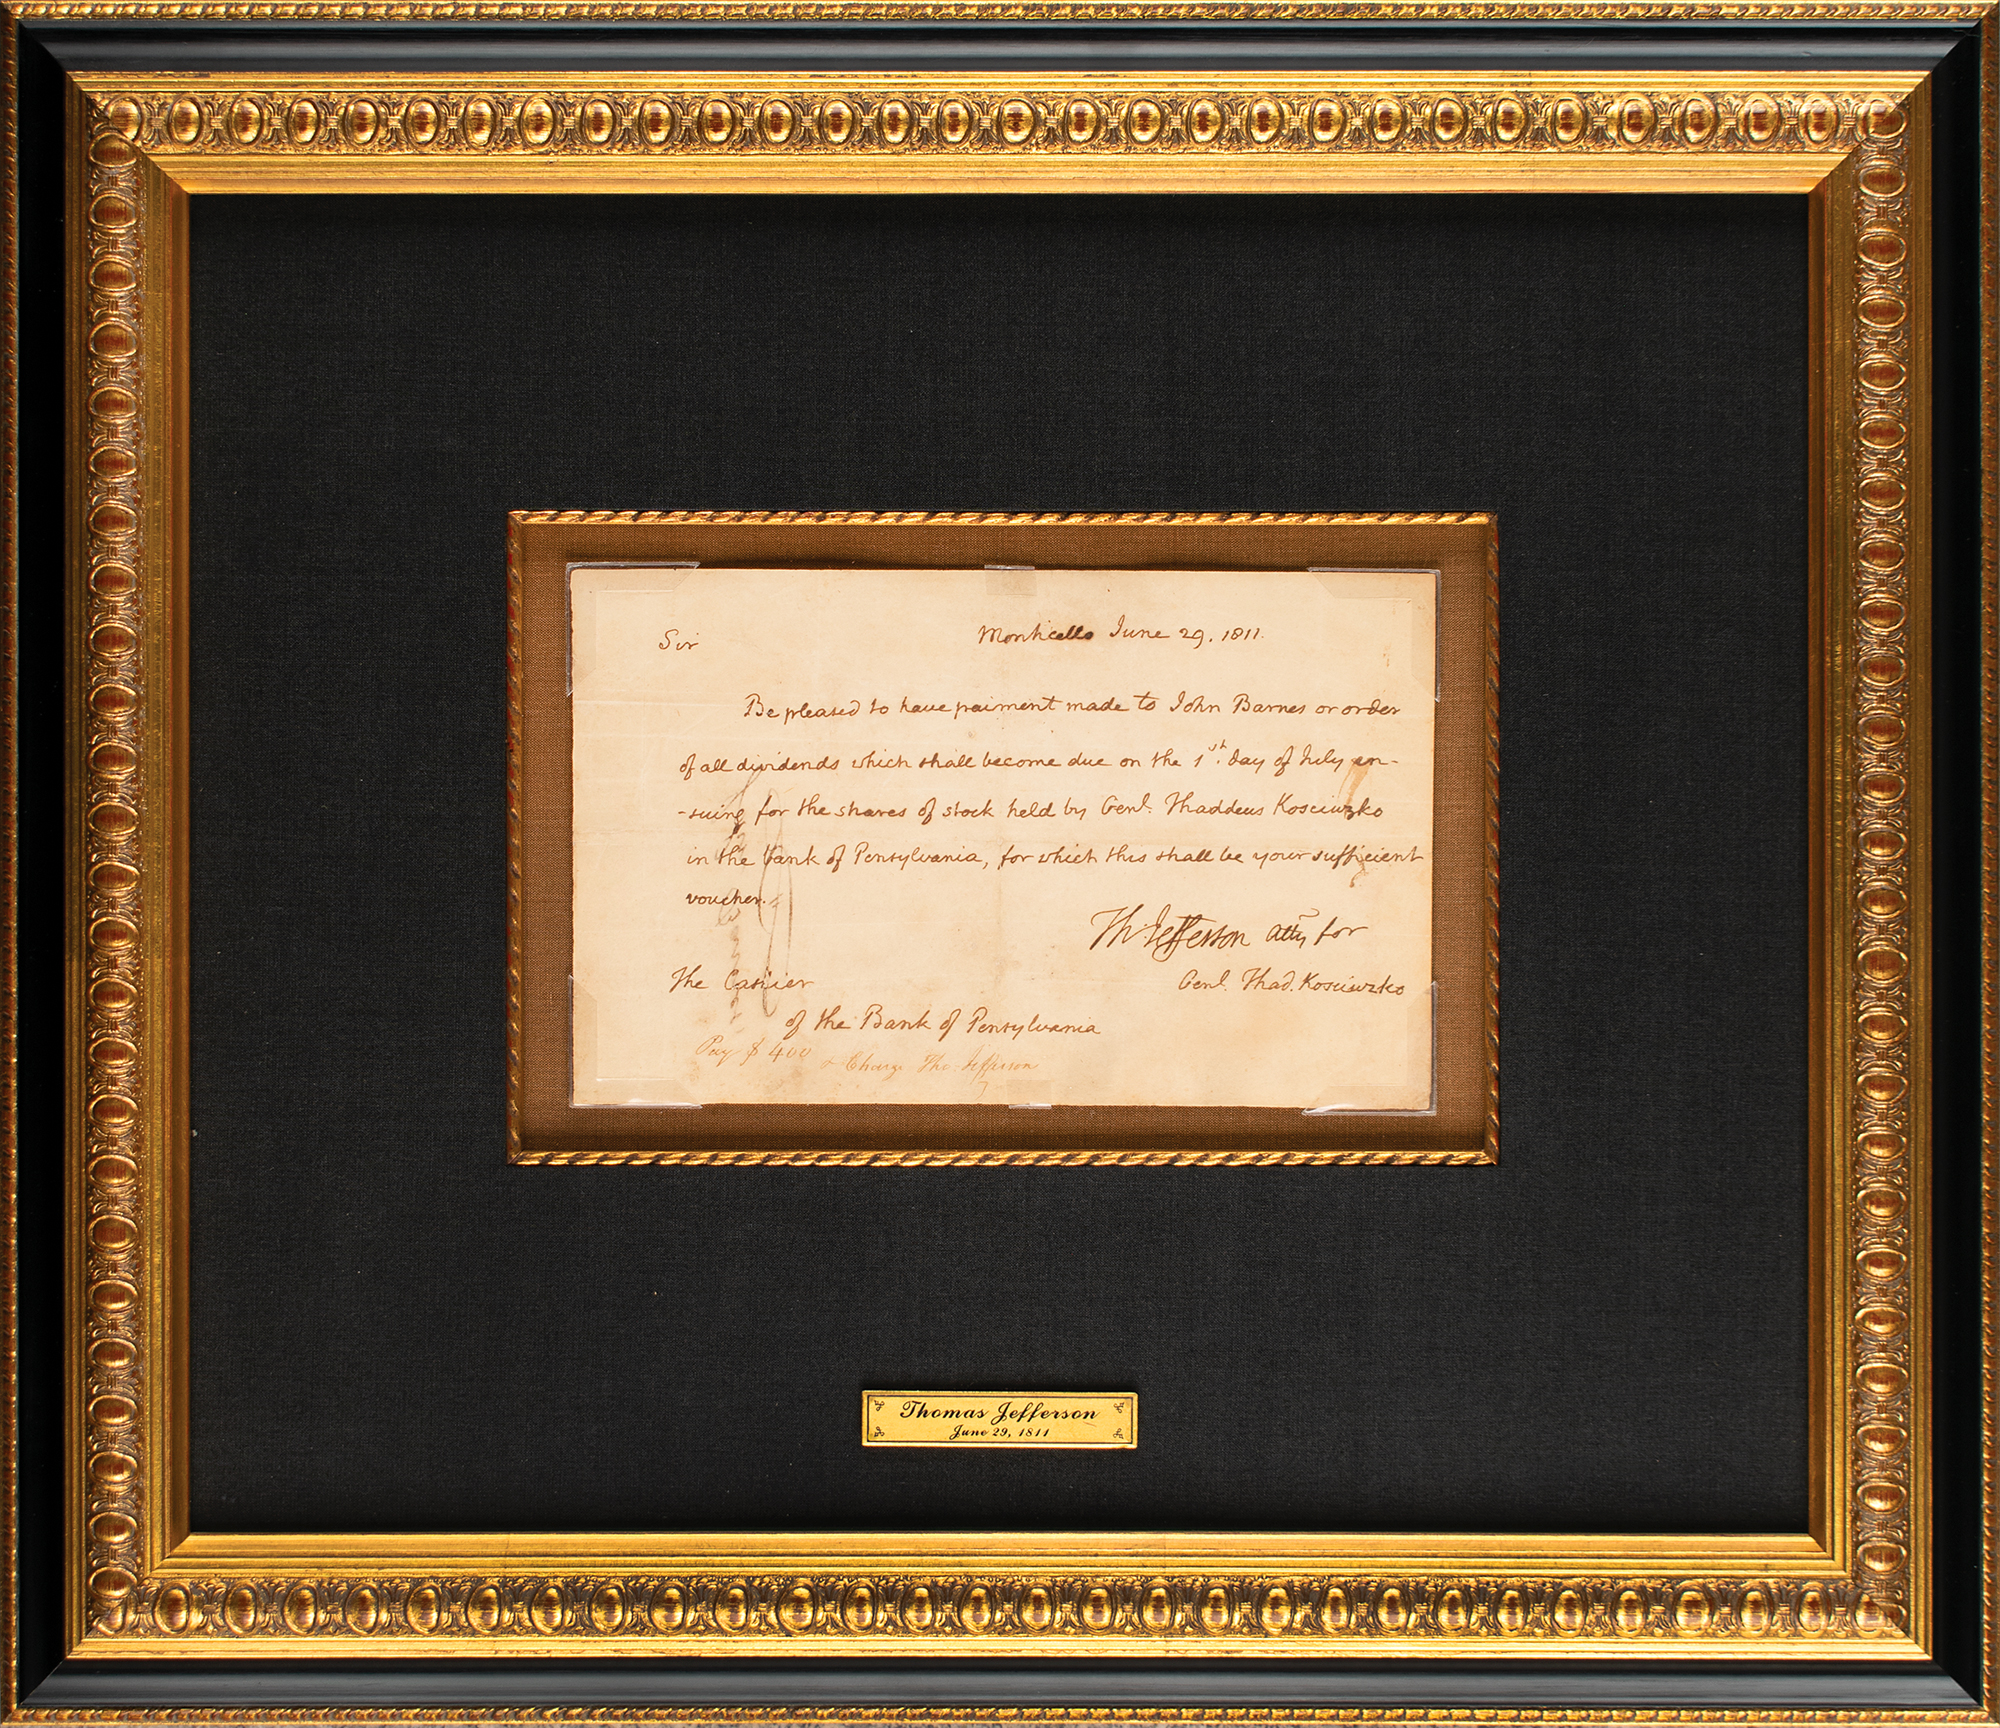 Sir
Monticello June 29. 1811.
Be pleased to have paiment made to John Barnes or order
of all dividends which shall become due on the 1st. day of July en-
-suing for the shares of stock held by Genl. Thaddeus Kosciuzko
in the bank of Pensylvania, for which this shall be your sufficient
voucher.
Th: Jefferson atty for
Genl. Thad. Kosciuzko
The Cashier
of the Bank of Pensylvania
Pay $ 400 & Charge Tho. Jefferson
Thomas Jefferson
June 29, 1811